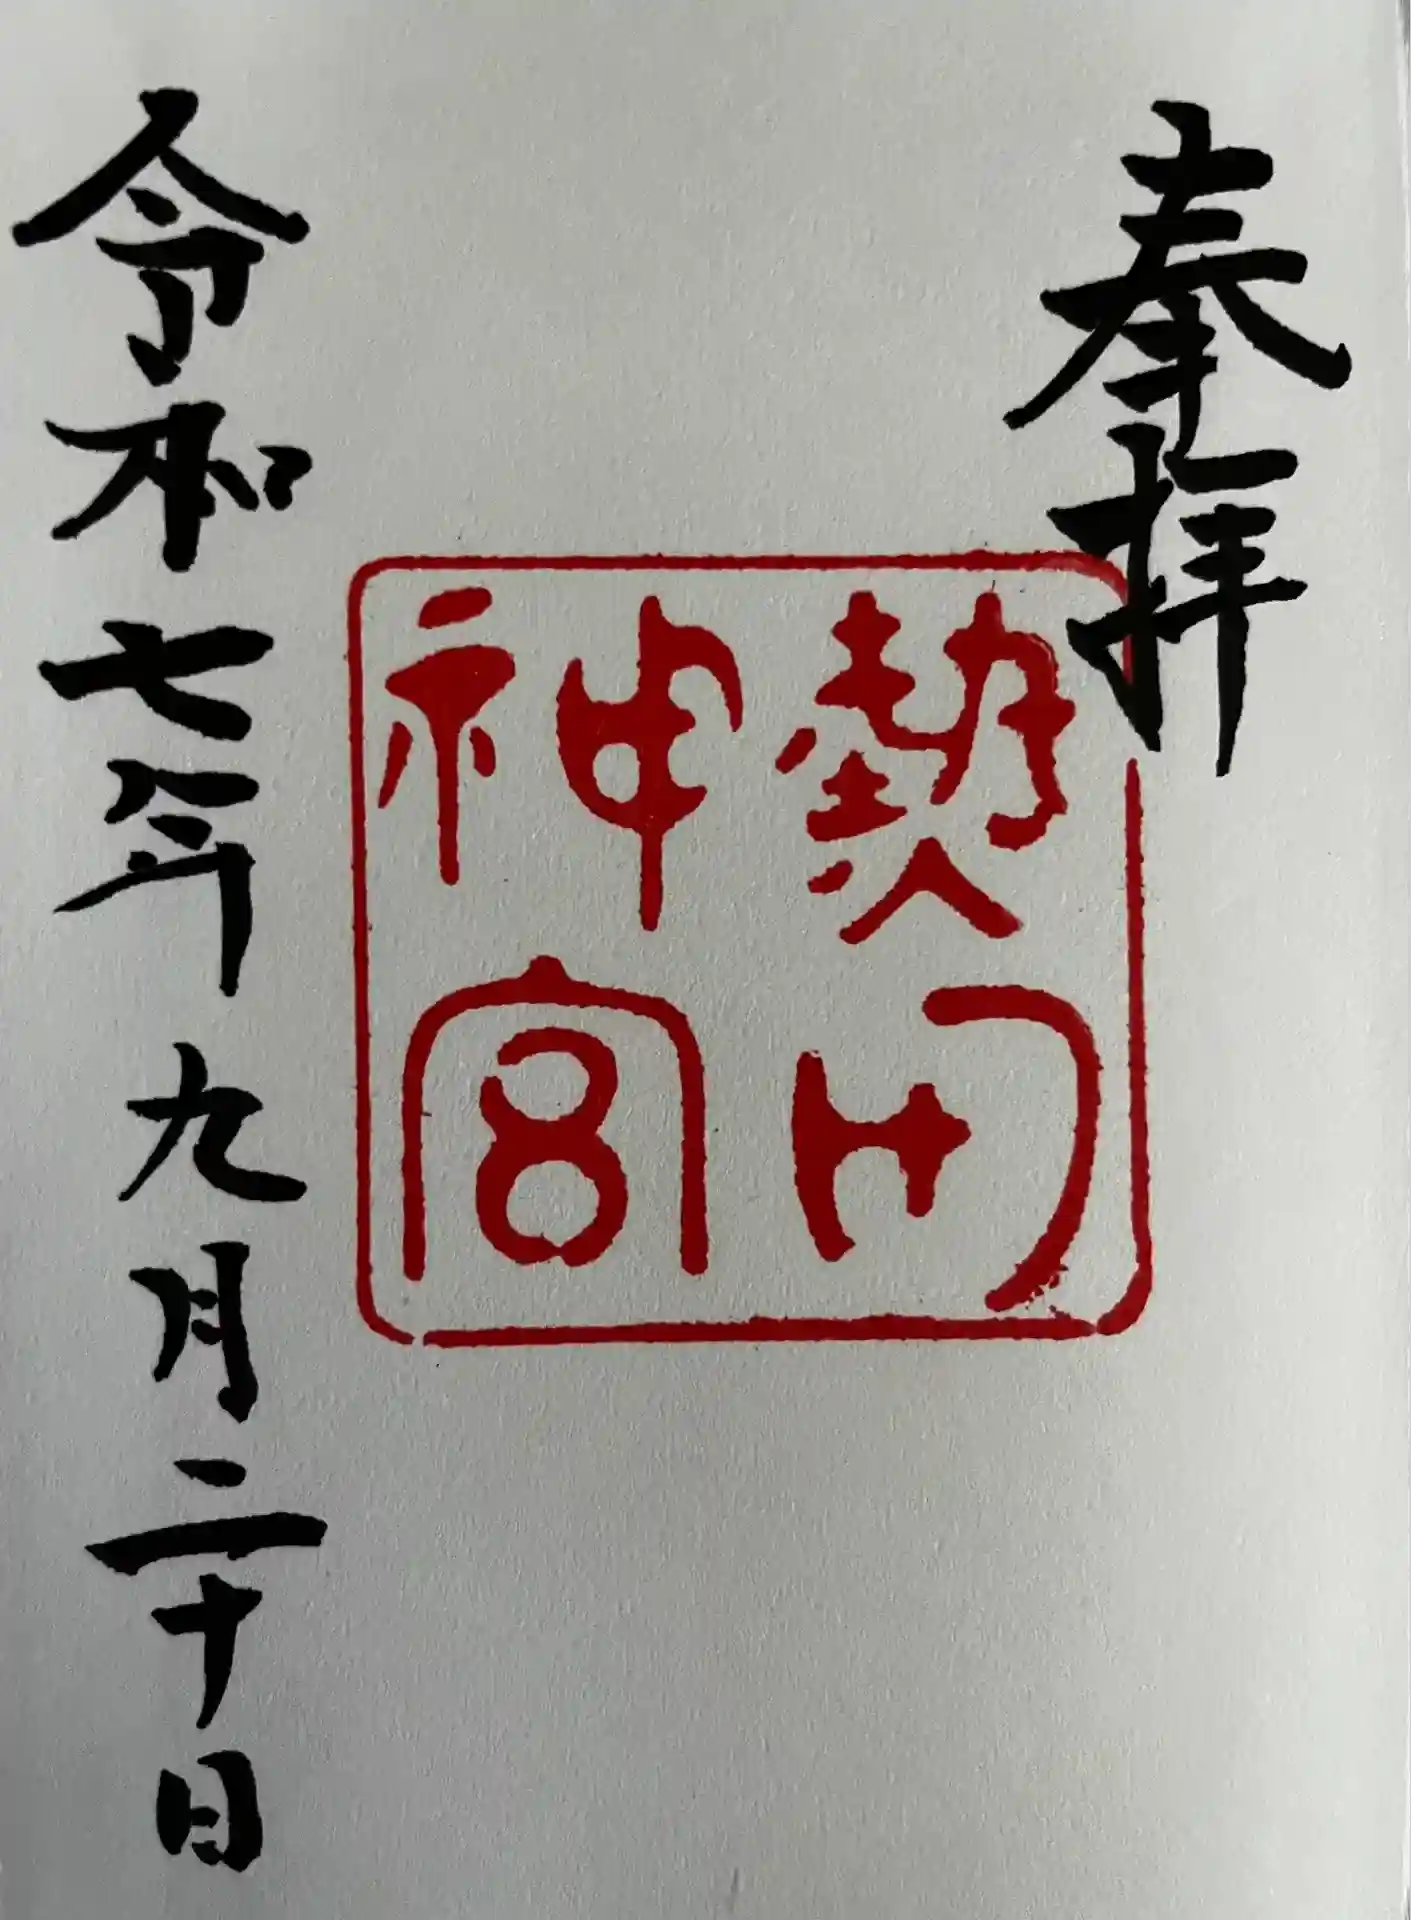 奉拝
熱田
神宮
令和七年九月二十日